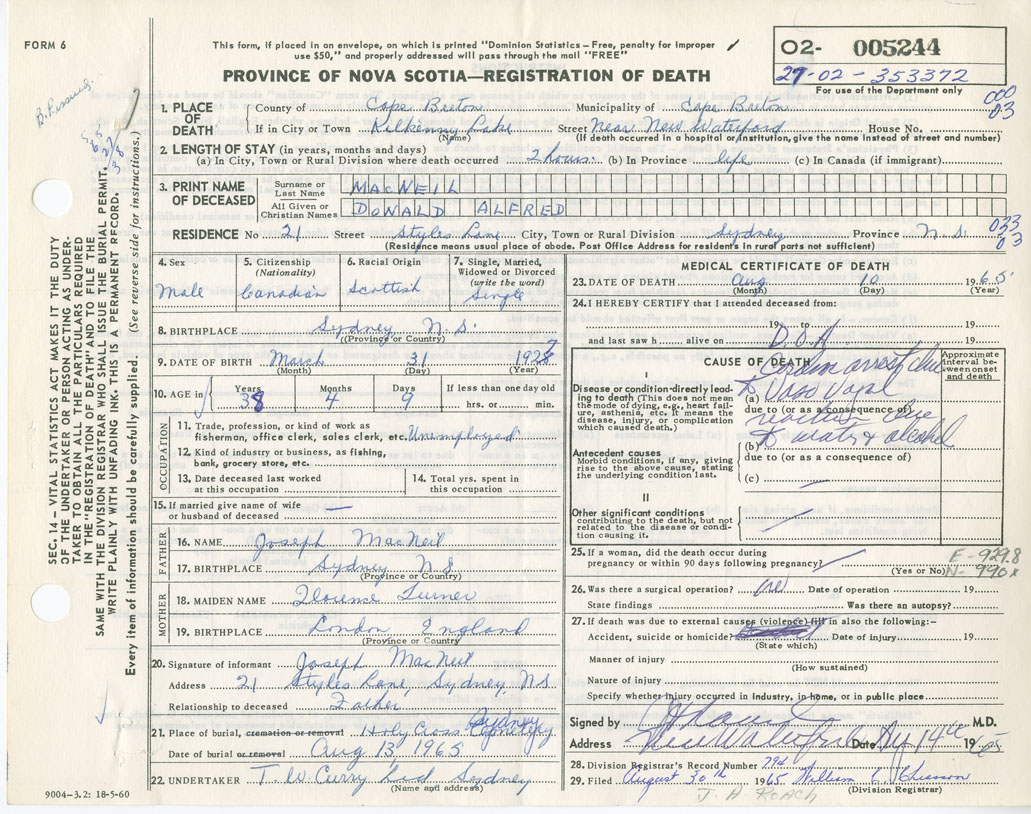 FORM 6
This form, if placed in an envelope, on which is printed "Dominion Statistics – Free, penalty for improper
use $50," and properly addressed will pass through the mail "FREE"
PROVINCE OF NOVA SCOTIA—REGISTRATION OF DEATH
02- 005244
27-02-353372
For use of the Department only
1. PLACE OF DEATH
County of Cape Breton Municipality of Cape Breton
000
03
If in City or Town Kilkenny Lake Street Near New Waterford House No.
(Name) (If death occurred in a hospital or institution, give the name instead of street and number)
2. LENGTH OF STAY (in years, months and days)
(a) In City, Town or Rural Division where death occurred 2 hours. (b) In Province life (c) In Canada (if immigrant)
3. PRINT NAME OF DECEASED
Surname or Last Name MACNEIL
All Given or Christian Names DONALD ALFRED
RESIDENCE No 21 Street Styles Lane City, Town or Rural Division Sydney Province N.S.
033
03
(Residence means usual place of abode. Post Office Address for residents in rural parts not sufficient)
4. Sex
Male
5. Citizenship (Nationality)
Canadian
6. Racial Origin
Scottish
7. Single, Married, Widowed or Divorced (write the word)
Single
8. BIRTHPLACE Sydney N.S.
(Province or Country)
9. DATE OF BIRTH March 31 1927
(Month) (Day) (Year)
10. AGE in Years 38 Months 4 Days 9 If less than one day old
hrs. or min.
OCCUPATION
11. Trade, profession, or kind of work as
fisherman, office clerk, sales clerk, etc. Unemployed
12. Kind of industry or business, as fishing,
bank, grocery store, etc.
13. Date deceased last worked
at this occupation
14. Total yrs. spent in
this occupation
15. If married give name of wife
or husband of deceased —
FATHER
16. NAME Joseph MacNeil
17. BIRTHPLACE Sydney N S
(Province or Country)
MOTHER
18. MAIDEN NAME Florence Turner
19. BIRTHPLACE London England
(Province or Country)
20. Signature of informant Joseph MacNeil
Address 21 Styles Lane, Sydney, NS
Relationship to deceased Father
21. Place of burial, cremation or removal Holy Cross Cemetery Sydney
Date of burial or removal Aug 13, 1965
22. UNDERTAKER T. W. Curry Ltd Sydney
(Name and address)
9004–3.2: 18-5-60
MEDICAL CERTIFICATE OF DEATH
23. DATE OF DEATH Aug 10 1965
(Month) (Day) (Year)
24. I HEREBY CERTIFY that I attended deceased from:
19 to 19
and last saw h alive on D.O.A 19
CAUSE OF DEATH
Approximate
interval be-
tween onset
and death
I
Disease or condition directly lead-
ing to death (This does not mean
the mode of dying, e.g., heart failure,
asthenia, etc. It means the
disease, injury, or complication
which caused death.)
(a) arrest due
to Vaso vagal
due to (or as a consequence of)
due
(b) to water & alcohol
due to (or as a consequence of)
(c)
Antecedent causes
Morbid conditions, if any, giving
rise to the above cause, stating
the underlying condition last.
II
Other significant conditions
contributing to the death, but not
related to the disease or con-
dition causing it.
25. If a woman, did the death occur during
pregnancy or within 90 days following pregnancy?
(Yes or No)
E-929.8
N-990x
26. Was there a surgical operation? Date of operation 19
State findings Was there an autopsy?
27. If death was due to external causes (violence) fill in also the following:–
Accident, suicide or homicide? Date of injury 19
(State which)
Manner of injury
(How sustained)
Nature of injury
Specify whether injury occurred in industry, in home, or in public place
Signed by M.D.
Address New Waterford Date 14th 1965
28. Division Registrar's Record Number 794
29. Filed August 30th 1965 William
(Division Registrar)
J. A ROACH
SEC. 14 – VITAL STATISTICS ACT MAKES IT THE DUTY
OF THE UNDERTAKER OR PERSON ACTING AS UNDER-
TAKER TO OBTAIN ALL THE PARTICULARS REQUIRED
IN THE "REGISTRATION OF DEATH" AND TO FILE THE
SAME WITH THE DIVISION REGISTRAR WHO SHALL ISSUE THE BURIAL PERMIT.
WRITE PLAINLY WITH UNFADING INK. THIS IS A PERMANENT RECORD.
Every item of information should be carefully supplied. (See reverse side for instructions.)